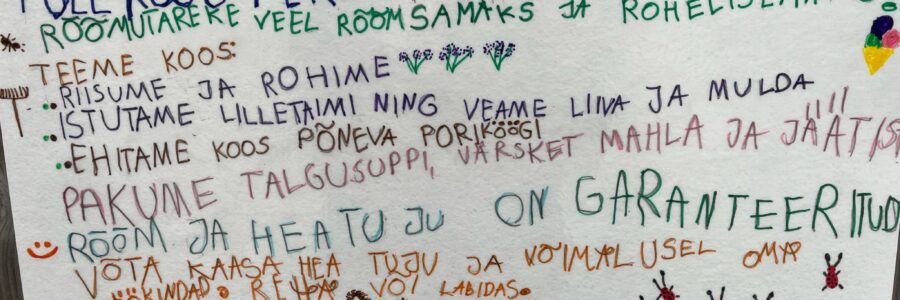 RÕÕMUTAREKE VEEL RÕÕMSAMAKS JA
TEEME KOOS:
..RIISUME JA ROHIME
..ISTUTAME LILLETAIMI NING VEAME LIIVA JA MULDA
..EHITAME KOOS PÕNEVA PORIKÖÖGI
PAKUME TALGUSUPPI, VÄRSKET MAHLA JA JÄÄTIS
RÕÕM JA HEA TUJU ON GARANTEERITUD
VÕTA KAASA HEA TUJU JA VÕIMALUSEL OMA
REHA VÕI LABIDAS.